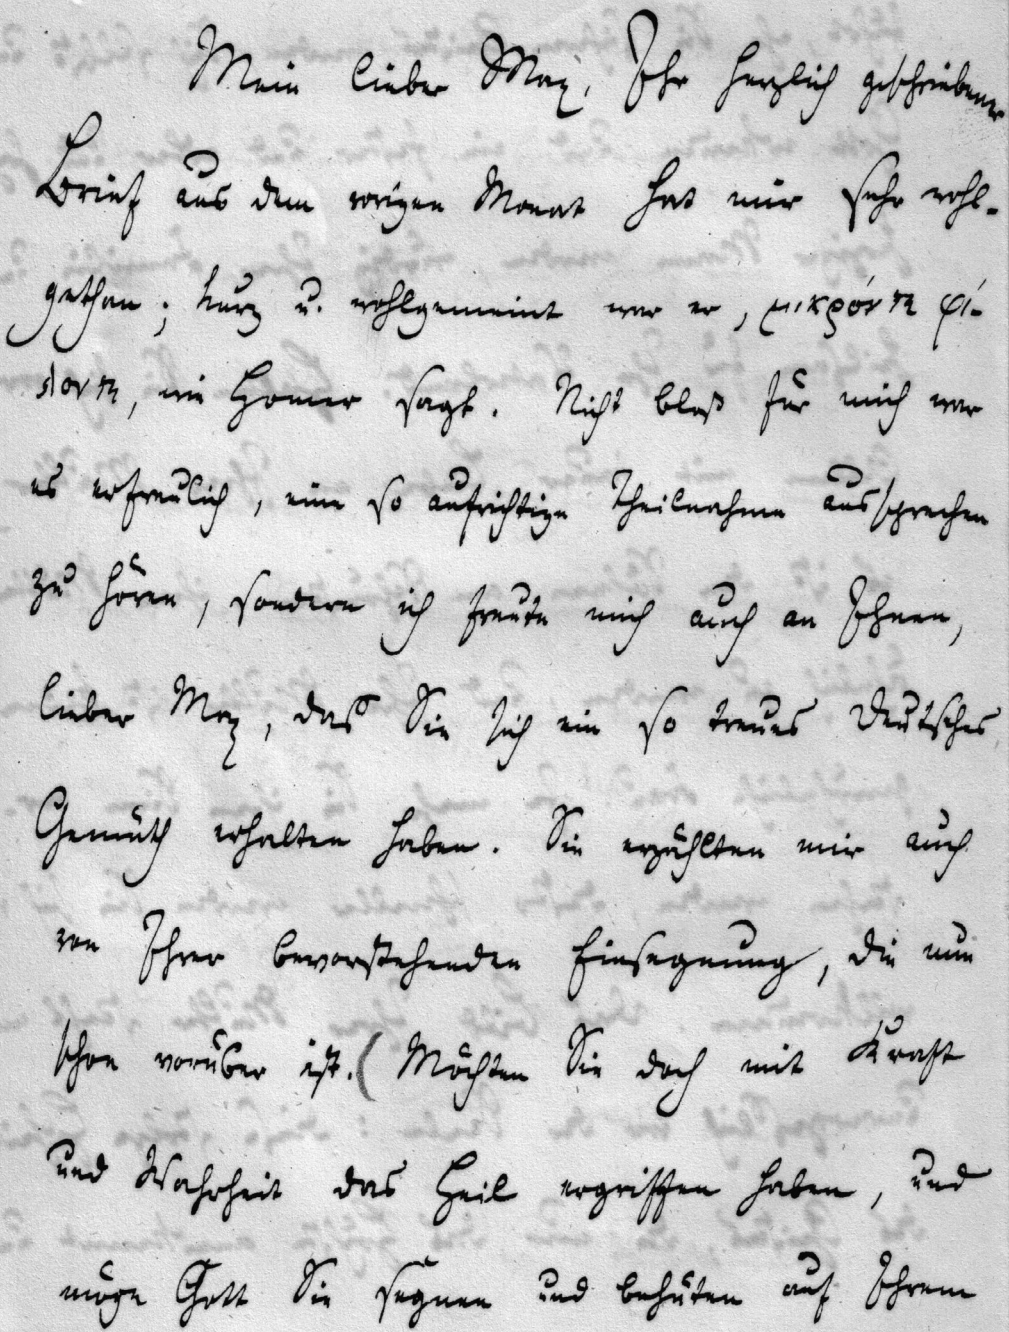 Mein lieber Max, Ihr herzlich geschriebener
Brief aus dem vorigen Monat hat mir sehr wohl-
gethan; kurz u. wohlgemeint war er, μικρόν τε φί-
λον τε, wie Homer sagt. Nicht bloß für mich war
es erfreulich, eine so aufrichtige Theilnahme aussprechen
zu hören, sondern ich freute mich auch an Ihnen,
lieber Max, daß Sie sich ein so treues deutsches
Gemüth erhalten haben. Sie erzählten mir auch
von Ihrer bevorstehenden Einsegnung, die nun
schon vorüber ist. (Möchten Sie doch mit Kraft
und Wahrheit das Heil ergriffen haben, und
möge Gott Sie segnen und behüten auf Ihrem